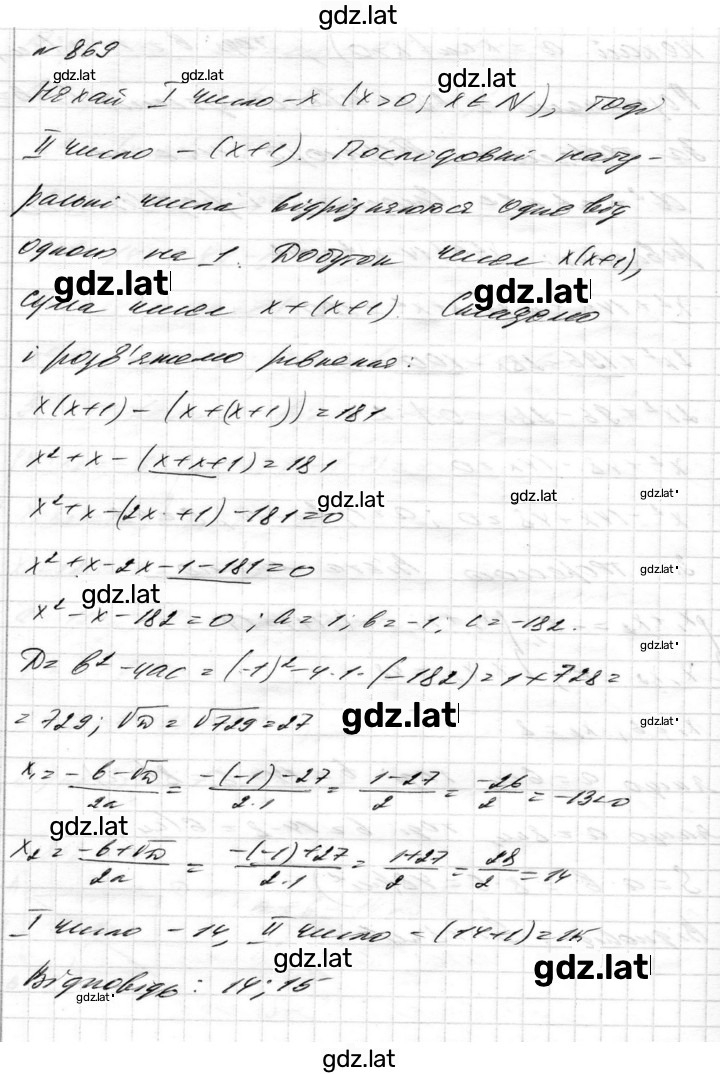 gdz.lat
№ 869
gdz.lat gdz.lat gdz.lat
Нехай I число - x (x>0; x∈N), тоді
II число - (x+1). Послідовні нату-
ральні числа відрізняються одне від
одного на 1. Добуток чисел x(x+1),
gdz.lat gdz.lat
сума чисел x+(x+1). Складемо
і розв'яжемо рівняння:
x(x+1) - (x+(x+1)) = 181
x² + x - (x+x+1) = 181
gdz.lat gdz.lat gdz.lat
x² + x - (2x + 1) - 181 = 0
x² + x - 2x - 1 - 181 = 0
gdz.lat
gdz.lat
x² - x - 182 = 0 ; a = 1; b = -1; c = -182.
gdz.lat
D = b² - 4ac = (-1)² - 4·1·(-182) = 1 + 728 =
= 729; √D = √729 = 27
gdz.lat gdz.lat
x₁ = (-b-√D)/2a = (-(-1)-27)/(2·1) = (1-27)/2 = -26/2 = -13<0
gdz.lat
x₂ = (-b+√D)/2a = (-(-1)+27)/(2·1) = (1+27)/2 = 28/2 = 14
I число - 14, II число = (14+1) = 15
gdz.lat gdz.lat
Відповідь: 14; 15
gdz.lat
gdz.lat